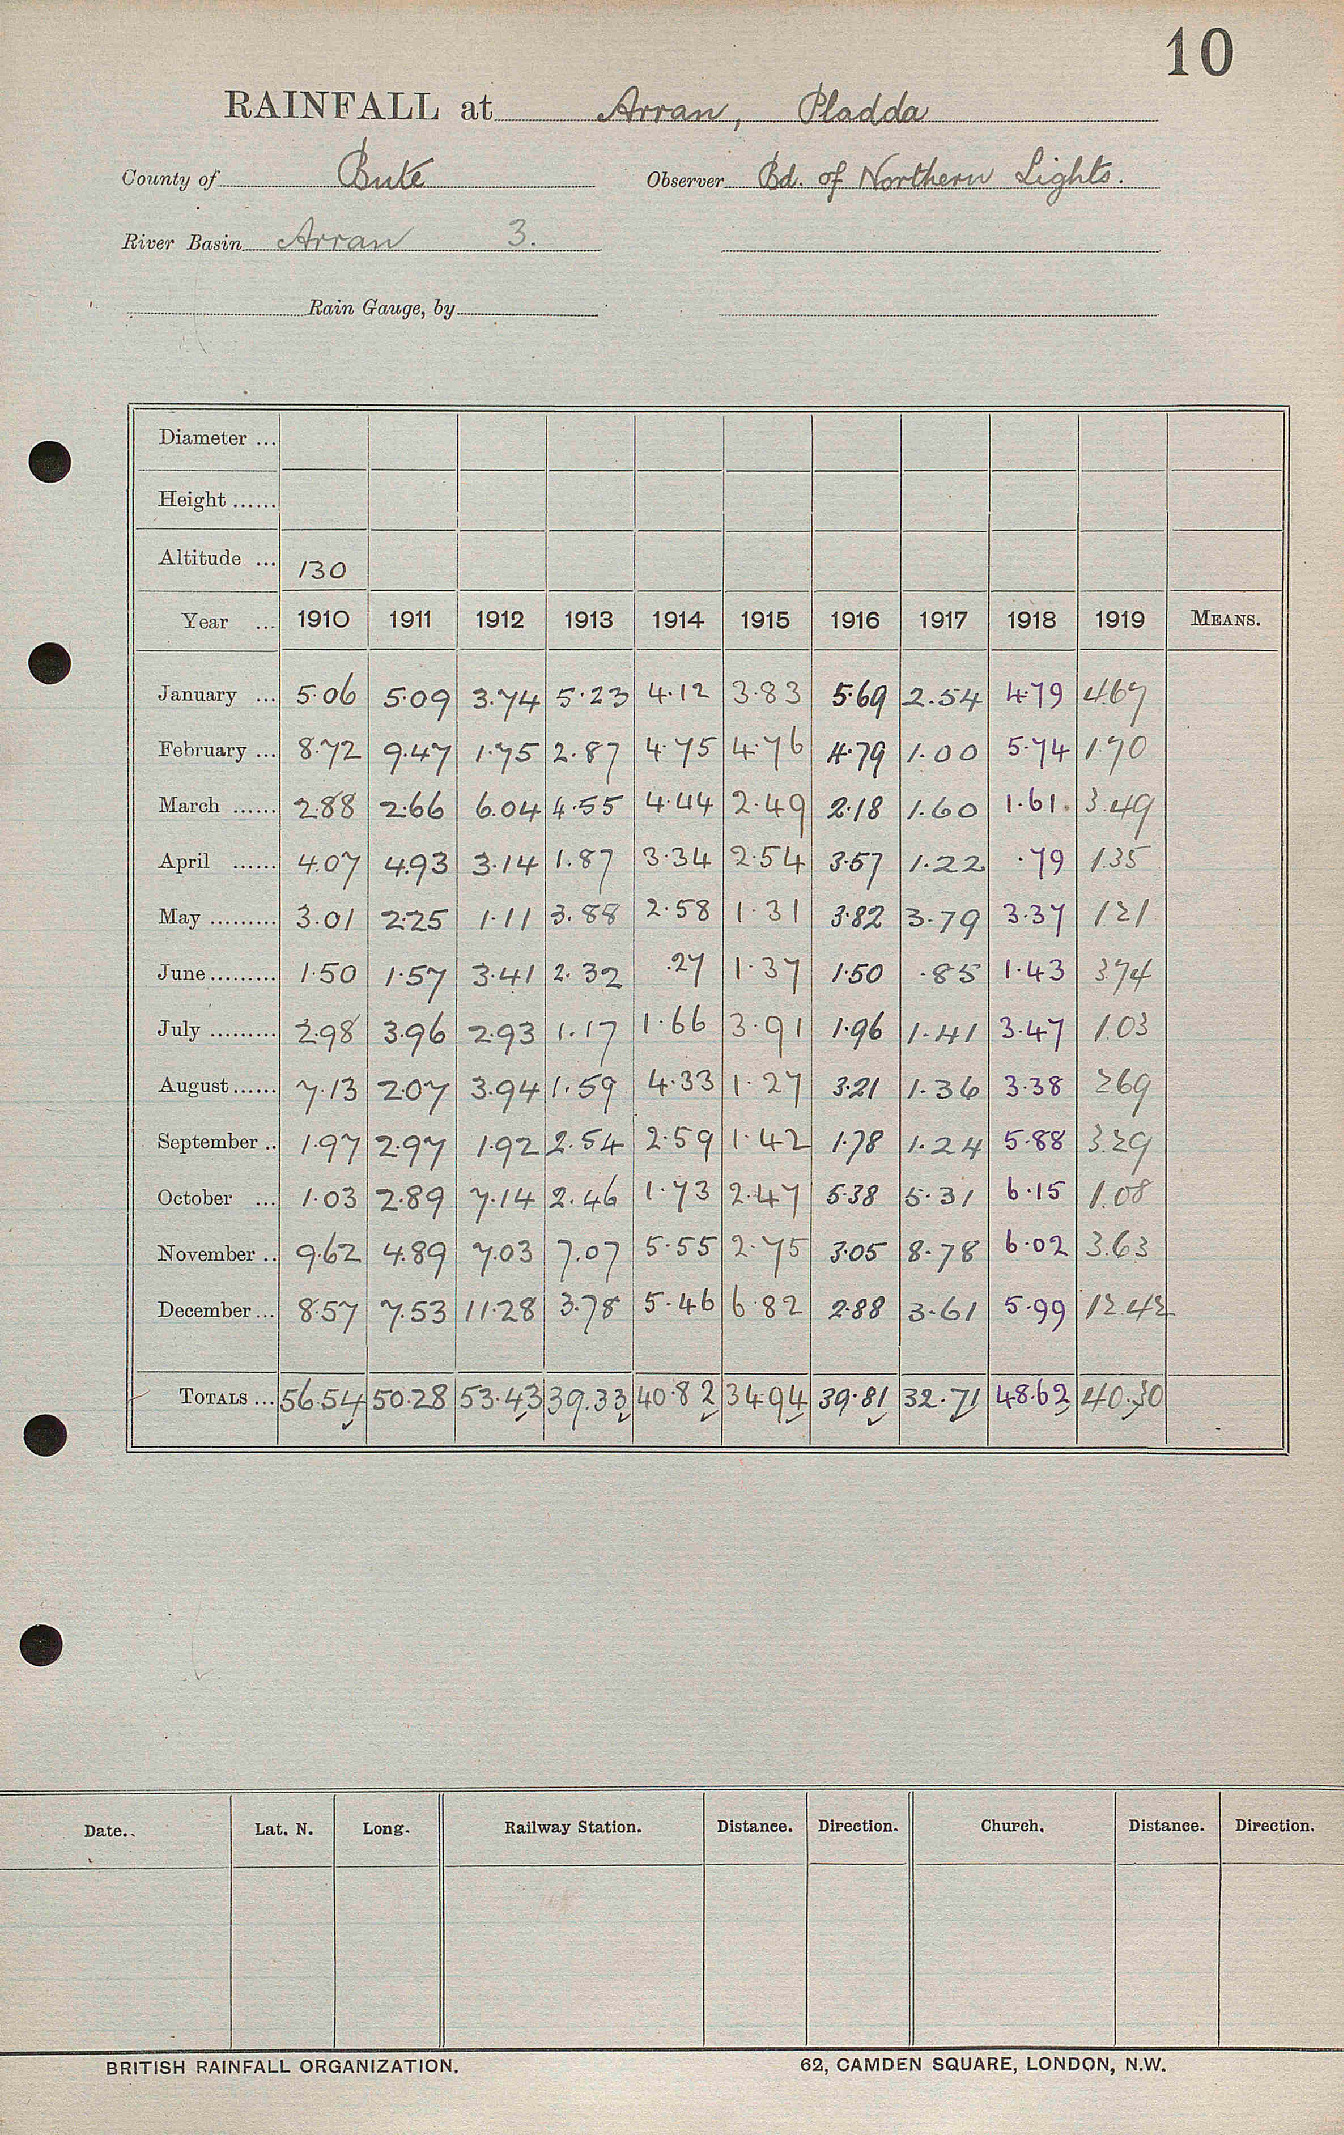 10
RAINFALL at Arran, Pladda
County of Bute Observer Bd. of Northern Lights.
River Basin Arran 3.
Rain Gauge, by
Diameter ...
Height ......
Altitude ... 130
Year ... 1910 1911 1912 1913 1914 1915 1916 1917 1918 1919 MEANS.
January ... 5.06 5.09 3.74 5.23 4.12 3.83 5.69 2.54 4.79 4.67
February ... 8.72 9.47 1.75 2.87 4.75 4.76 4.79 1.00 5.74 1.70
March ...... 2.88 2.66 6.04 4.55 4.44 2.49 2.18 1.60 1.61 3.49
April ...... 4.07 4.93 3.14 1.87 3.34 2.54 3.57 1.22 .79 1.35
May ......... 3.01 2.25 1.11 3.88 2.58 1.31 3.82 3.79 3.37 1.21
June ......... 1.50 1.57 3.41 2.32 .27 1.37 1.50 .85 1.43 3.74
July ......... 2.98 3.96 2.93 1.17 1.66 3.91 1.96 1.41 3.47 1.03
August ...... 7.13 2.07 3.94 1.59 4.33 1.27 3.21 1.36 3.38 2.69
September .. 1.97 2.97 1.92 2.54 2.59 1.42 1.78 1.24 5.88 3.29
October ... 1.03 2.89 7.14 2.46 1.73 2.47 5.38 5.31 6.15 1.08
November .. 9.62 4.89 7.03 7.07 5.55 2.75 3.05 8.78 6.02 3.63
December ... 8.57 7.53 11.28 3.78 5.46 6.82 2.88 3.61 5.99 12.42
TOTALS ... 56.54 50.28 53.43 39.33 40.82 34.94 39.81 32.71 48.62 40.30
Date.. Lat. N. Long. Railway Station. Distance. Direction. Church. Distance. Direction.
BRITISH RAINFALL ORGANIZATION. 62, CAMDEN SQUARE, LONDON, N.W.